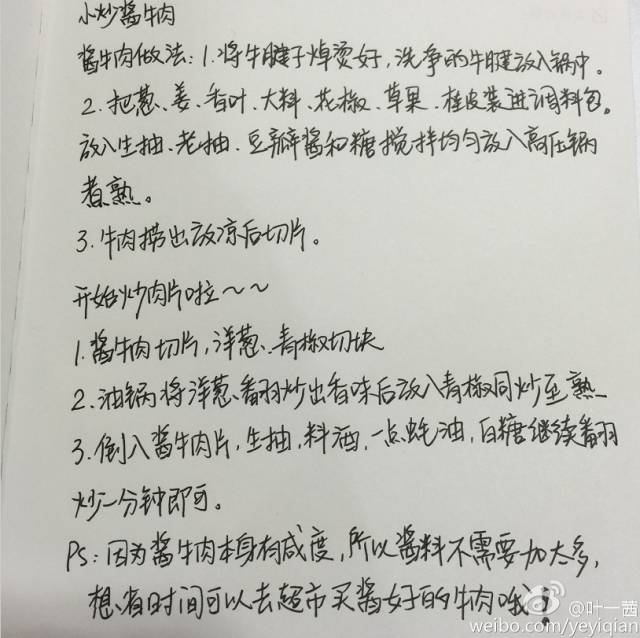 小炒酱牛肉
酱牛肉做法：1.将牛腱子焯烫好，洗净的牛腱放入锅中。
2.把葱、姜、香叶、大料、花椒、草果、桂皮装进调料包。
放入生抽、老抽、豆瓣酱和糖搅拌均匀放入高压锅
煮熟。
3.牛肉捞出放凉后切片。
开始炒肉片啦～～
1.酱牛肉切片，洋葱、青椒切块
2.油锅将洋葱翻炒出香味后放入青椒同炒至熟
3.倒入酱牛肉片，生抽，料酒，一点蚝油，白糖继续翻
炒一分钟即可。
PS：因为酱牛肉本身有咸度，所以酱料不需要加太多，
想省时间可以去超市买酱好的牛肉哦！
@叶一茜
weibo.com/yeyiqian